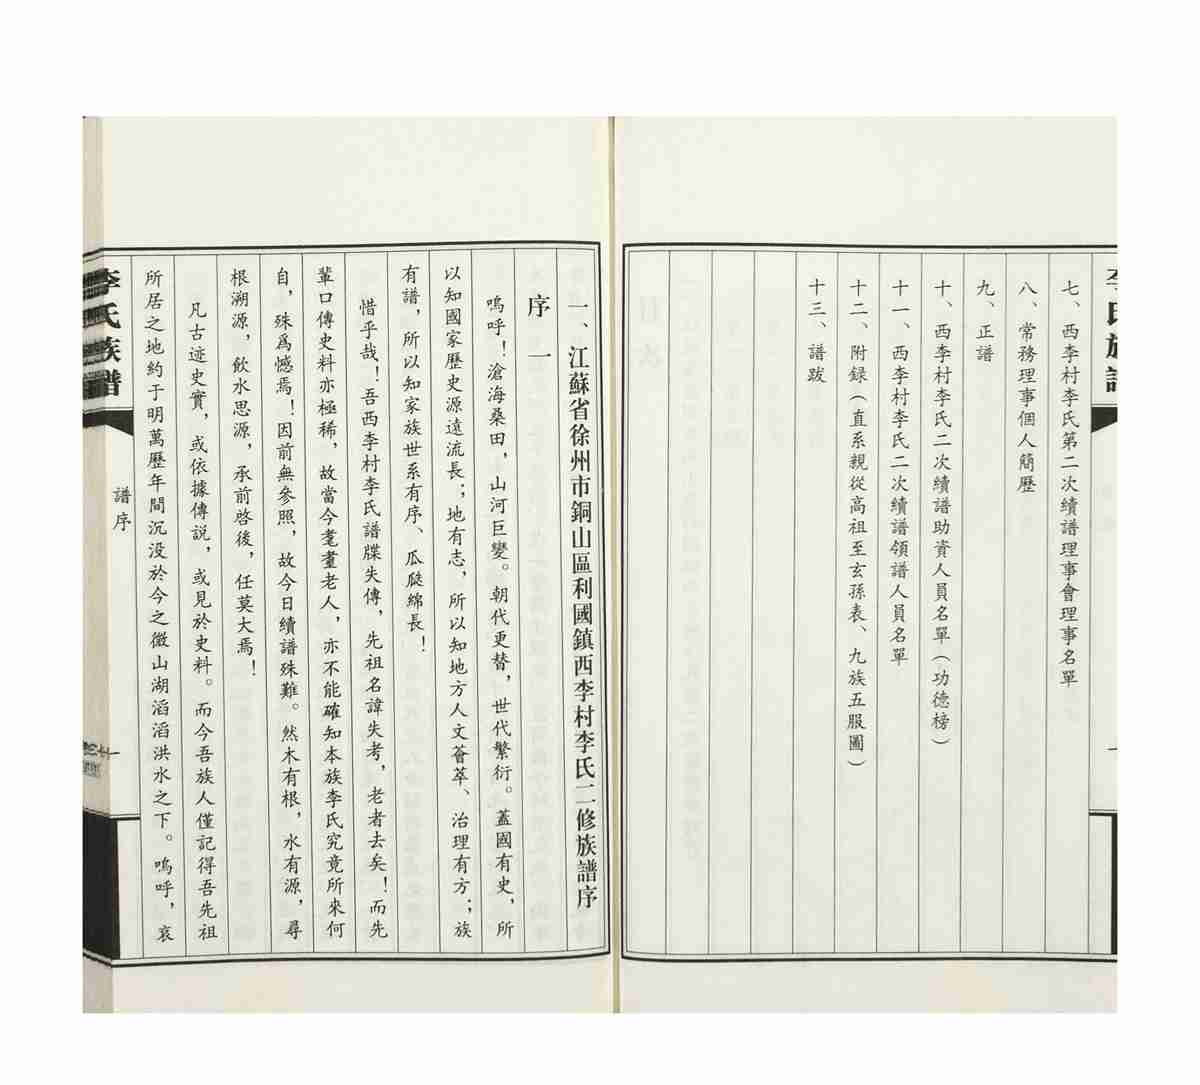 李氏族譜
七、西李村李氏第二次續譜理事會理事名單
八、常務理事個人簡歷
九、正譜
十、西李村李氏二次續譜助資人員名單（功德榜）
十一、西李村李氏二次續譜領譜人員名單
十二、附録（直系親從高祖至玄孫表、九族五服圖）
十三、譜跋
一、江蘇省徐州市銅山區利國鎮西李村李氏二修族譜序
序一
嗚呼！滄海桑田，山河巨變。朝代更替，世代繁衍。蓋國有史，所
以知國家歷史源遠流長；地有志，所以知地方人文薈萃、治理有方；族
有譜，所以知家族世系有序、瓜瓞綿長！
惜乎哉！吾西李村李氏譜牒失傳，先祖名諱失考，老者去矣！而先
輩口傳史料亦極稀，故當今耄耋老人，亦不能確知本族李氏究竟所來何
自，殊爲憾焉！因前無參照，故今日續譜殊難。然木有根，水有源，尋
根溯源，飲水思源，承前啓後，任莫大焉！
凡古迹史實，或依據傳説，或見於史料。而今吾族人僅記得吾先祖
所居之地約于明萬歷年間沉没於今之微山湖滔滔洪水之下。嗚呼，哀
李氏族譜
譜序